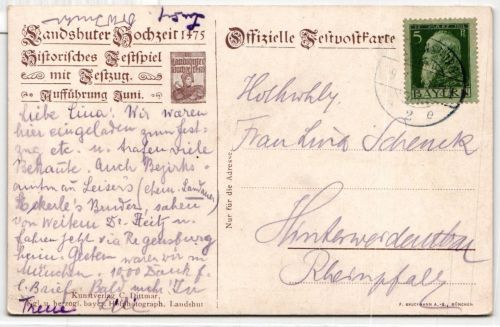 Landshuter Hochzeit 1475
Historisches Festspiel
mit Festzug.
Aufführung Juni.
Liebe Lina! Wir waren
hier eingeladen zum Fest-
zug etc. u. trafen viele
Bekannte. Auch Bezirks-
amtm. Leisers (ehem. Landau)
Eckerle's Bruder, sahen
von Weitem Dr. Heitz u.
fahren jetzt via Regensburg
heim. Gestern waren wir in
München. 1000 Dank f.
l. Brief. Bald mehr. In
Treue
Kunstverlag C. Dittmar,
kgl. u. herzogl. bayer. Hofphotograph. Landshut
Nur für die Adresse.
Offizielle Festpostkarte
5
BAYERN
Frau Lina Schenck
Hinterweidenthal
Rheinpfalz
F. BRUCKMANN A.-G., MÜNCHEN